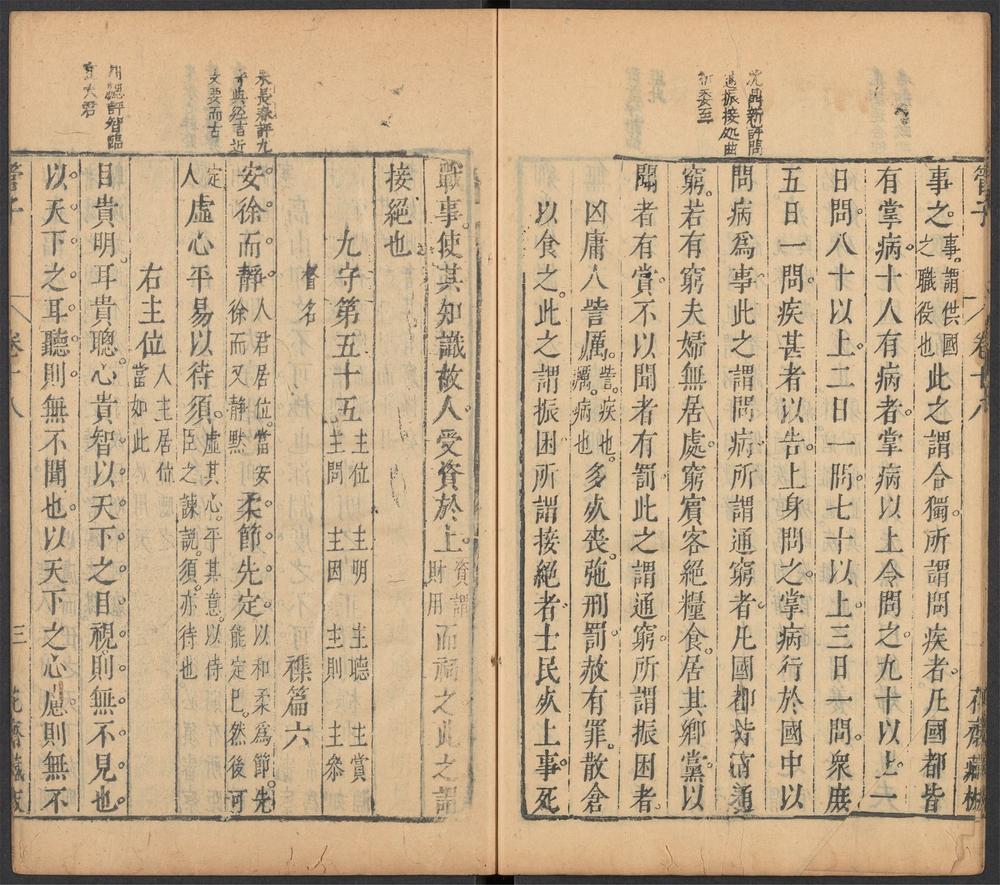 沈鼎新評問
通振接処曲
折委至
管子　卷十八　花齋藏板
事之事謂供國之職役也此之謂合獨所謂問疾者凡國都皆
有掌病十人有病者掌病以上令問之九十以上一
日一問八十以上二日一問七十以上三日一問衆庶
五日一問疾甚者以告上身問之掌病行於國中以
問病爲事此之謂問病所謂通窮者凡國都皆有通
窮若有窮夫婦無居處窮賓客絕糧食居其鄉黨以
聞者有賞不以聞者有罰此之謂通窮所謂振困者
凶庸人訾厲訾疾也厲病也多夭喪弛刑罰赦有罪散倉
以食之此之謂振困所謂接絕者士民夭上事死
朱長春評九
守典經言近
文要而古
評智臨
大君
戰事使其知識故人受資於上資謂財用而祠之此之謂
接絕也
九守第五十五主位　主明　主聽　主賞　主問　主因　主則　主參
督名　襍篇六
安徐而靜人君居位當安徐而又靜默柔節先定以和柔爲節先能定已然後可
定人虛心平易以待須虛其心平其意以待臣之諫説須亦待也
右主位人主居位當如此
目貴明耳貴聰心貴智以天下之目視則無不見也
以天下之耳聽則無不聞也以天下之心慮則無不
管子　卷十八　三　花齋藏板